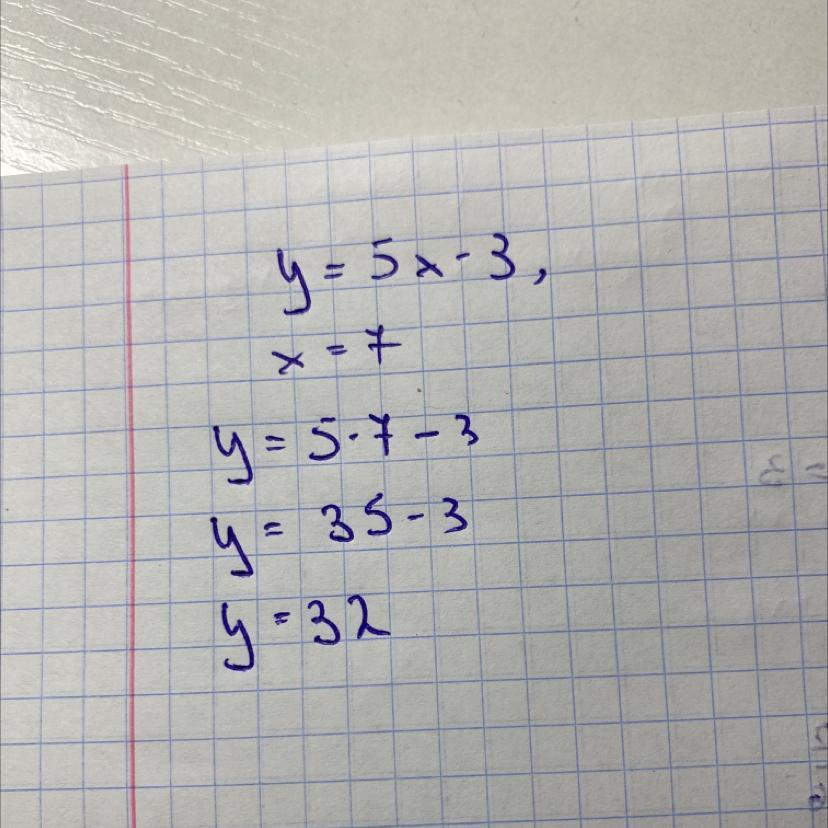 y = 5x - 3,
x = 7
y = 5·7 - 3
y = 35 - 3
y = 32